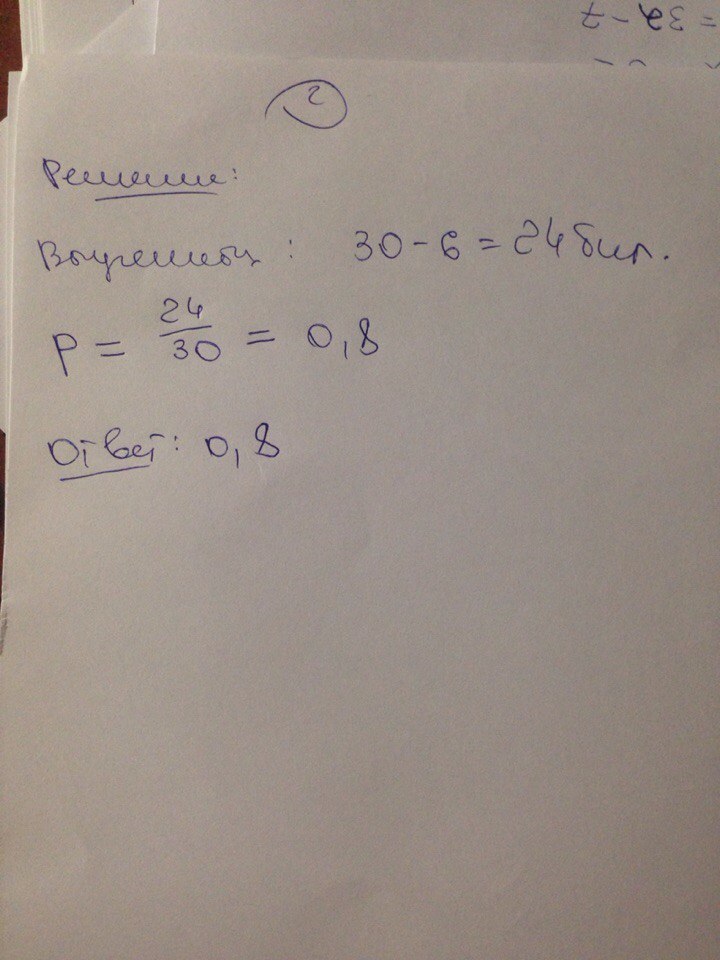 = 3x - 7
2
Решение:
Выученных: 30 - 6 = 24 бил.
P = 24/30 = 0,8
Ответ: 0,8